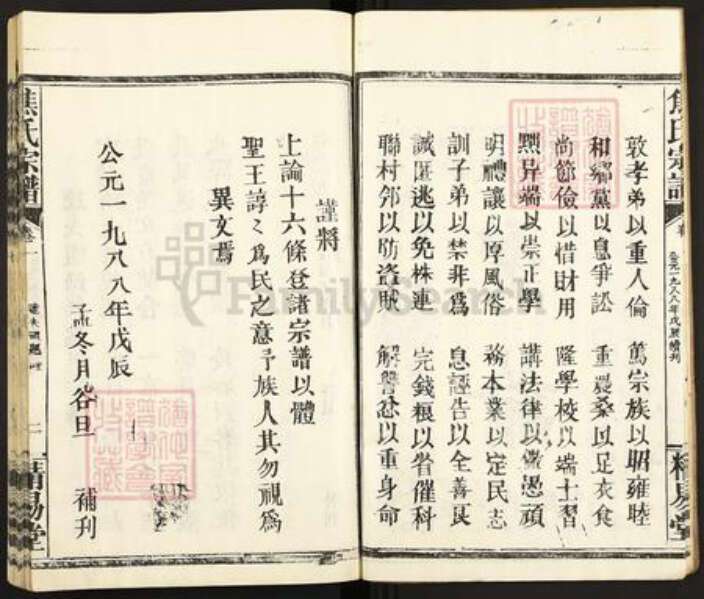 敦孝弟以重人倫 篤宗族以昭雍睦
和鄉黨以息爭訟 重農桑以足衣食
尚節儉以惜財用 隆學校以端士習
黜异端以崇正學 講法律以儆愚頑
明禮讓以厚風俗 務本業以定民志
訓子弟以禁非為 息誣告以全善良
誡匿逃以免株連 完錢粮以省催科
聯村邻以防盗賊 解讐忿以重身命
焦氏宗譜
公元一九八八年戊辰續刊
精易堂
謹將
上諭十六條登諸宗譜以體
聖王諄〻為民之意予族人其勿視為
異文焉
公元一九八八年戊辰
孟冬月谷旦 補刊
焦氏宗譜
卷一
二
精易堂
FamilySearch